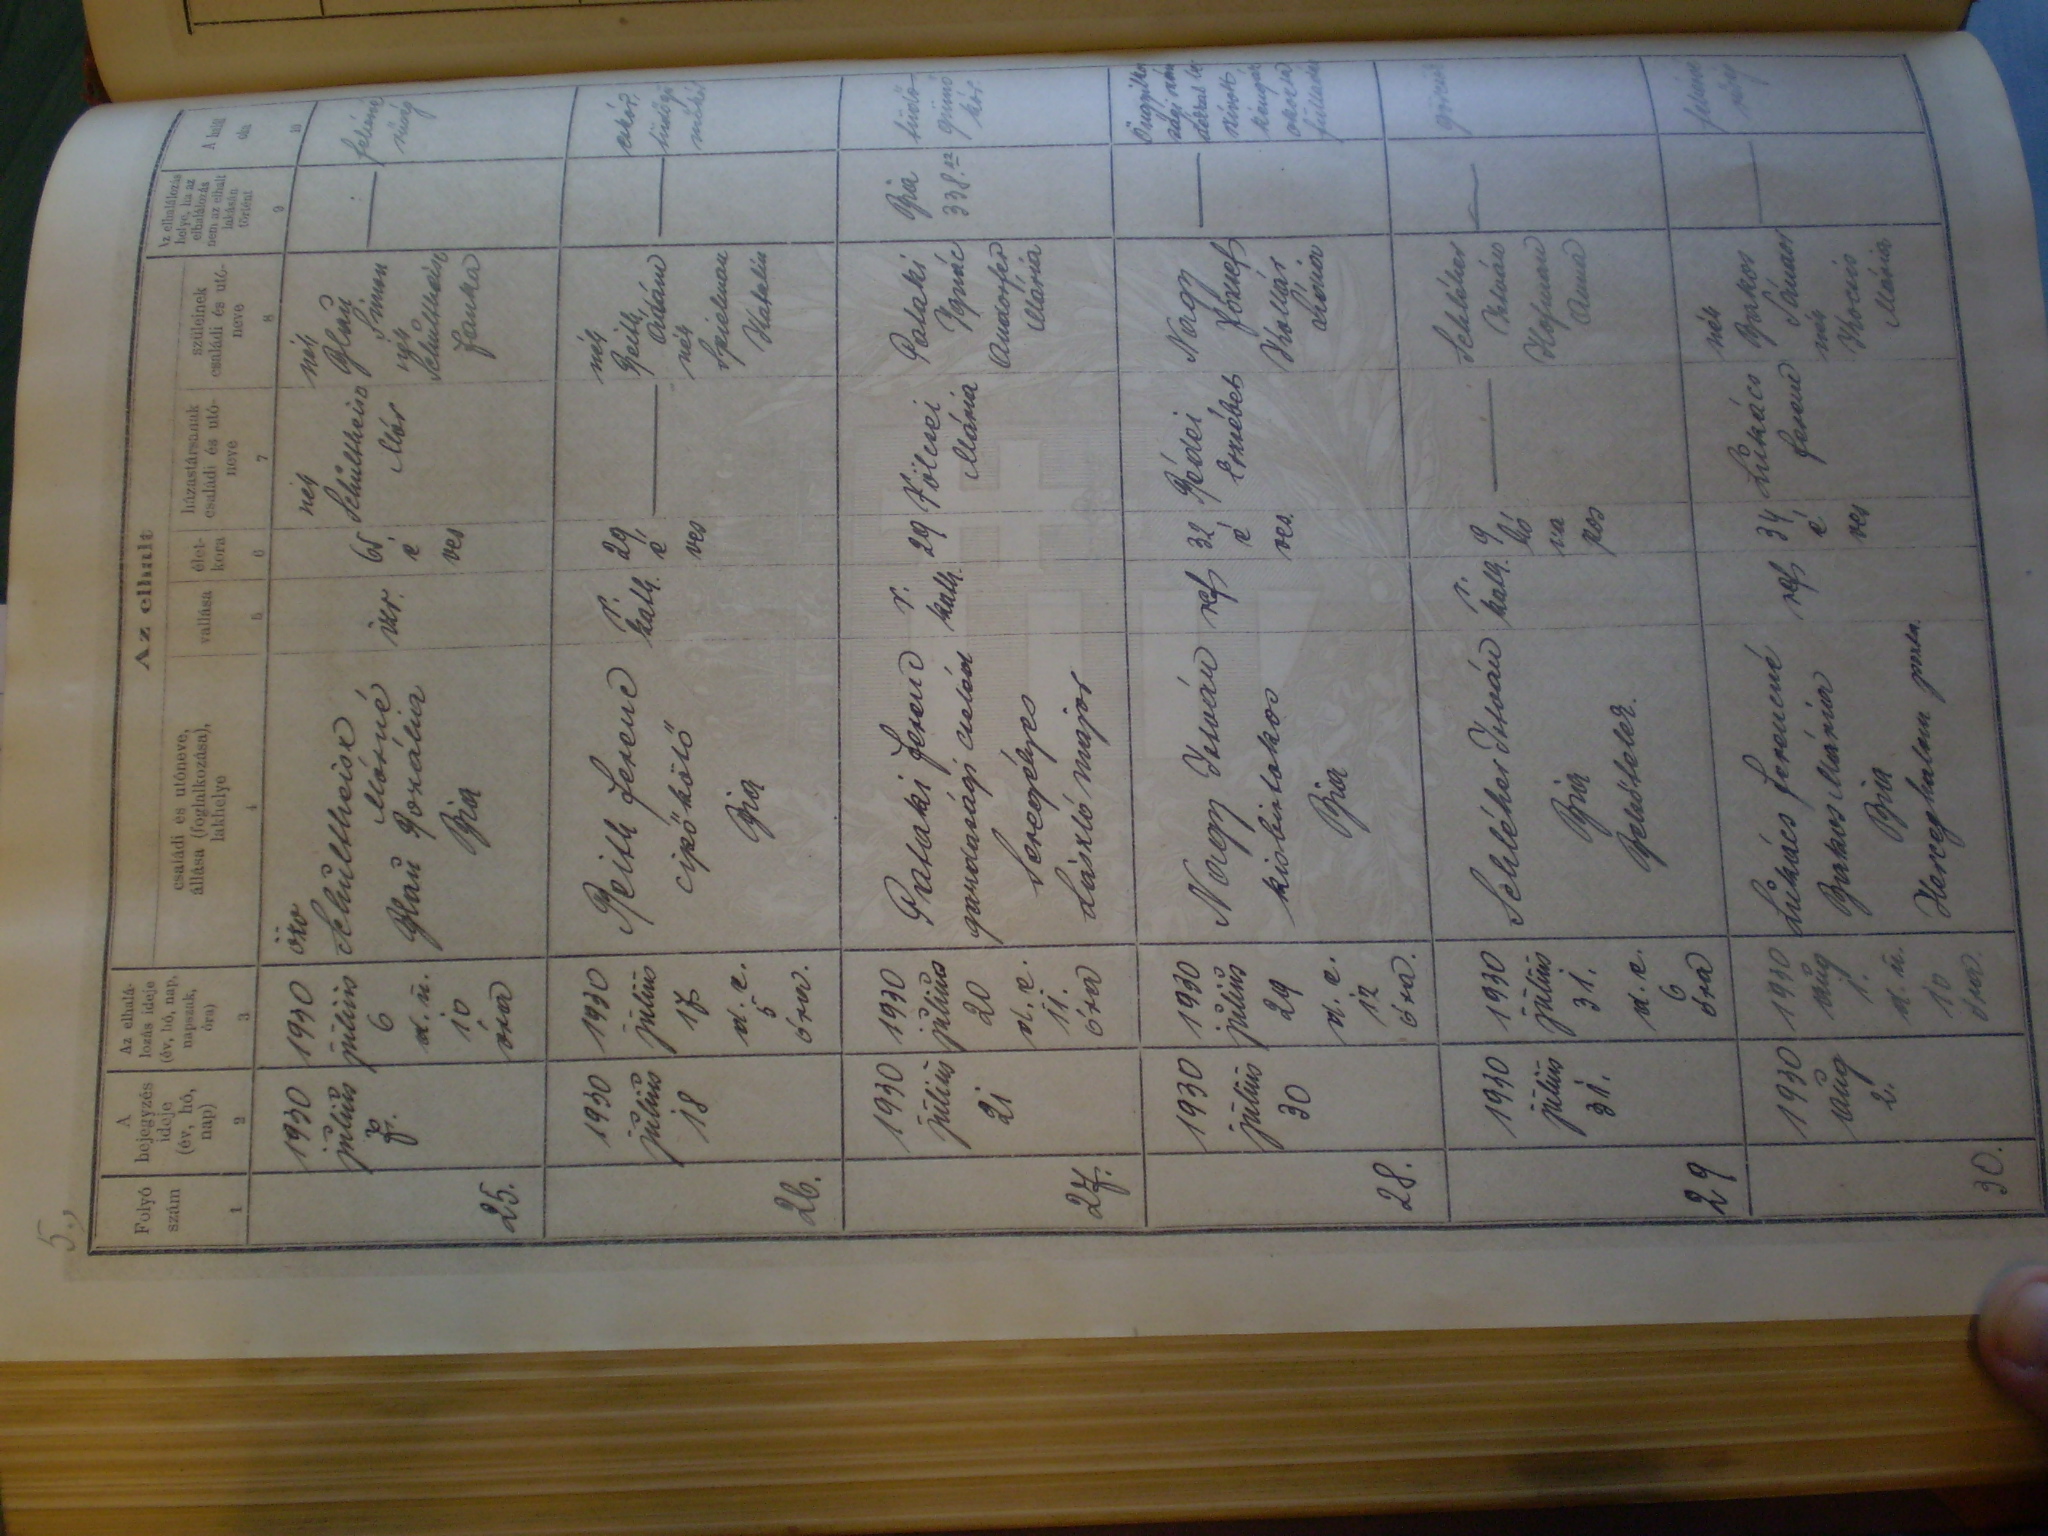 5.,
Az elhalt
Folyó
szám
A
bejegyzés
ideje
(év, hó,
nap)
Az elhalá-
lozás ideje
(év, hó, nap,
napszak,
óra)
családi és utóneve,
állása (foglalkozása),
lakhelye
vallása
élet-
kora
házastársának
családi és utó-
neve
szüleinek
családi és utó-
neve
Az elhalálozás
helye, ha az
elhalálozás
nem az elhalt
lakásán
történt
A halál
oka
1
2
3
4
5
6
7
8
9
10
25.
1930
július
7.
1930
július
6
d. u.
10
óra
özv
Schultheisz
Mórné
Blau Rozália
Bia
izr.
65
é
ves
néh
Schultheisz
Mór
néh
Blau
Simon
néh
Schulthein
Janka
26.
1930
július
18
1930
július
17
d. e.
5
óra.
Reith Ferenc
cipőkötő
Bia
r.
kath.
29
é
ves
néh
Reith
Ádám
néh
Spielman
Katalin
27.
1930
július
21
1930
július
20
d. e.
11.
óra
Pataki Ferenc
gazdasági cseléd
Seregélyes
László major
r.
kath.
29
Völcsei
Mária
Pataki
Ignác
Andorfer
Mária
Bia
338.
tüdő
gümő
kór.
28.
1930
július
30
1930
július
29
d. e.
12
óra.
Nagy István
kisbirtokos
Bia
ref
32
é
ves.
Rédei
Erzsébet
Nagy
József
Kollár
29
1930
július
31.
1930
július
31.
d. e.
6
óra
Schléher István
Bia
r.
kath.
9
hó
na
pos
Schléher
István
Hofman
Anna
30.
1930
Aug
2.
1930
aug
1.
d. u.
10
óra.
Lukács Ferencné
Barkos Mária
Bia
Herceghalom puszta.
ref
34
é
ves
Lukács
Ferenc
néh
Barkos
néh
Mária